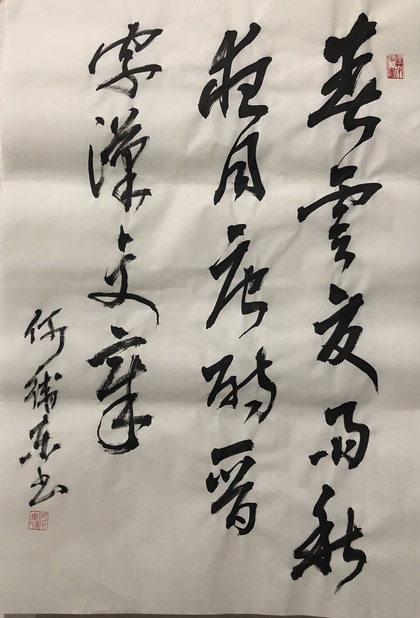 春雲夏雨秋
夜月唐詩晉
字漢文章
何東书